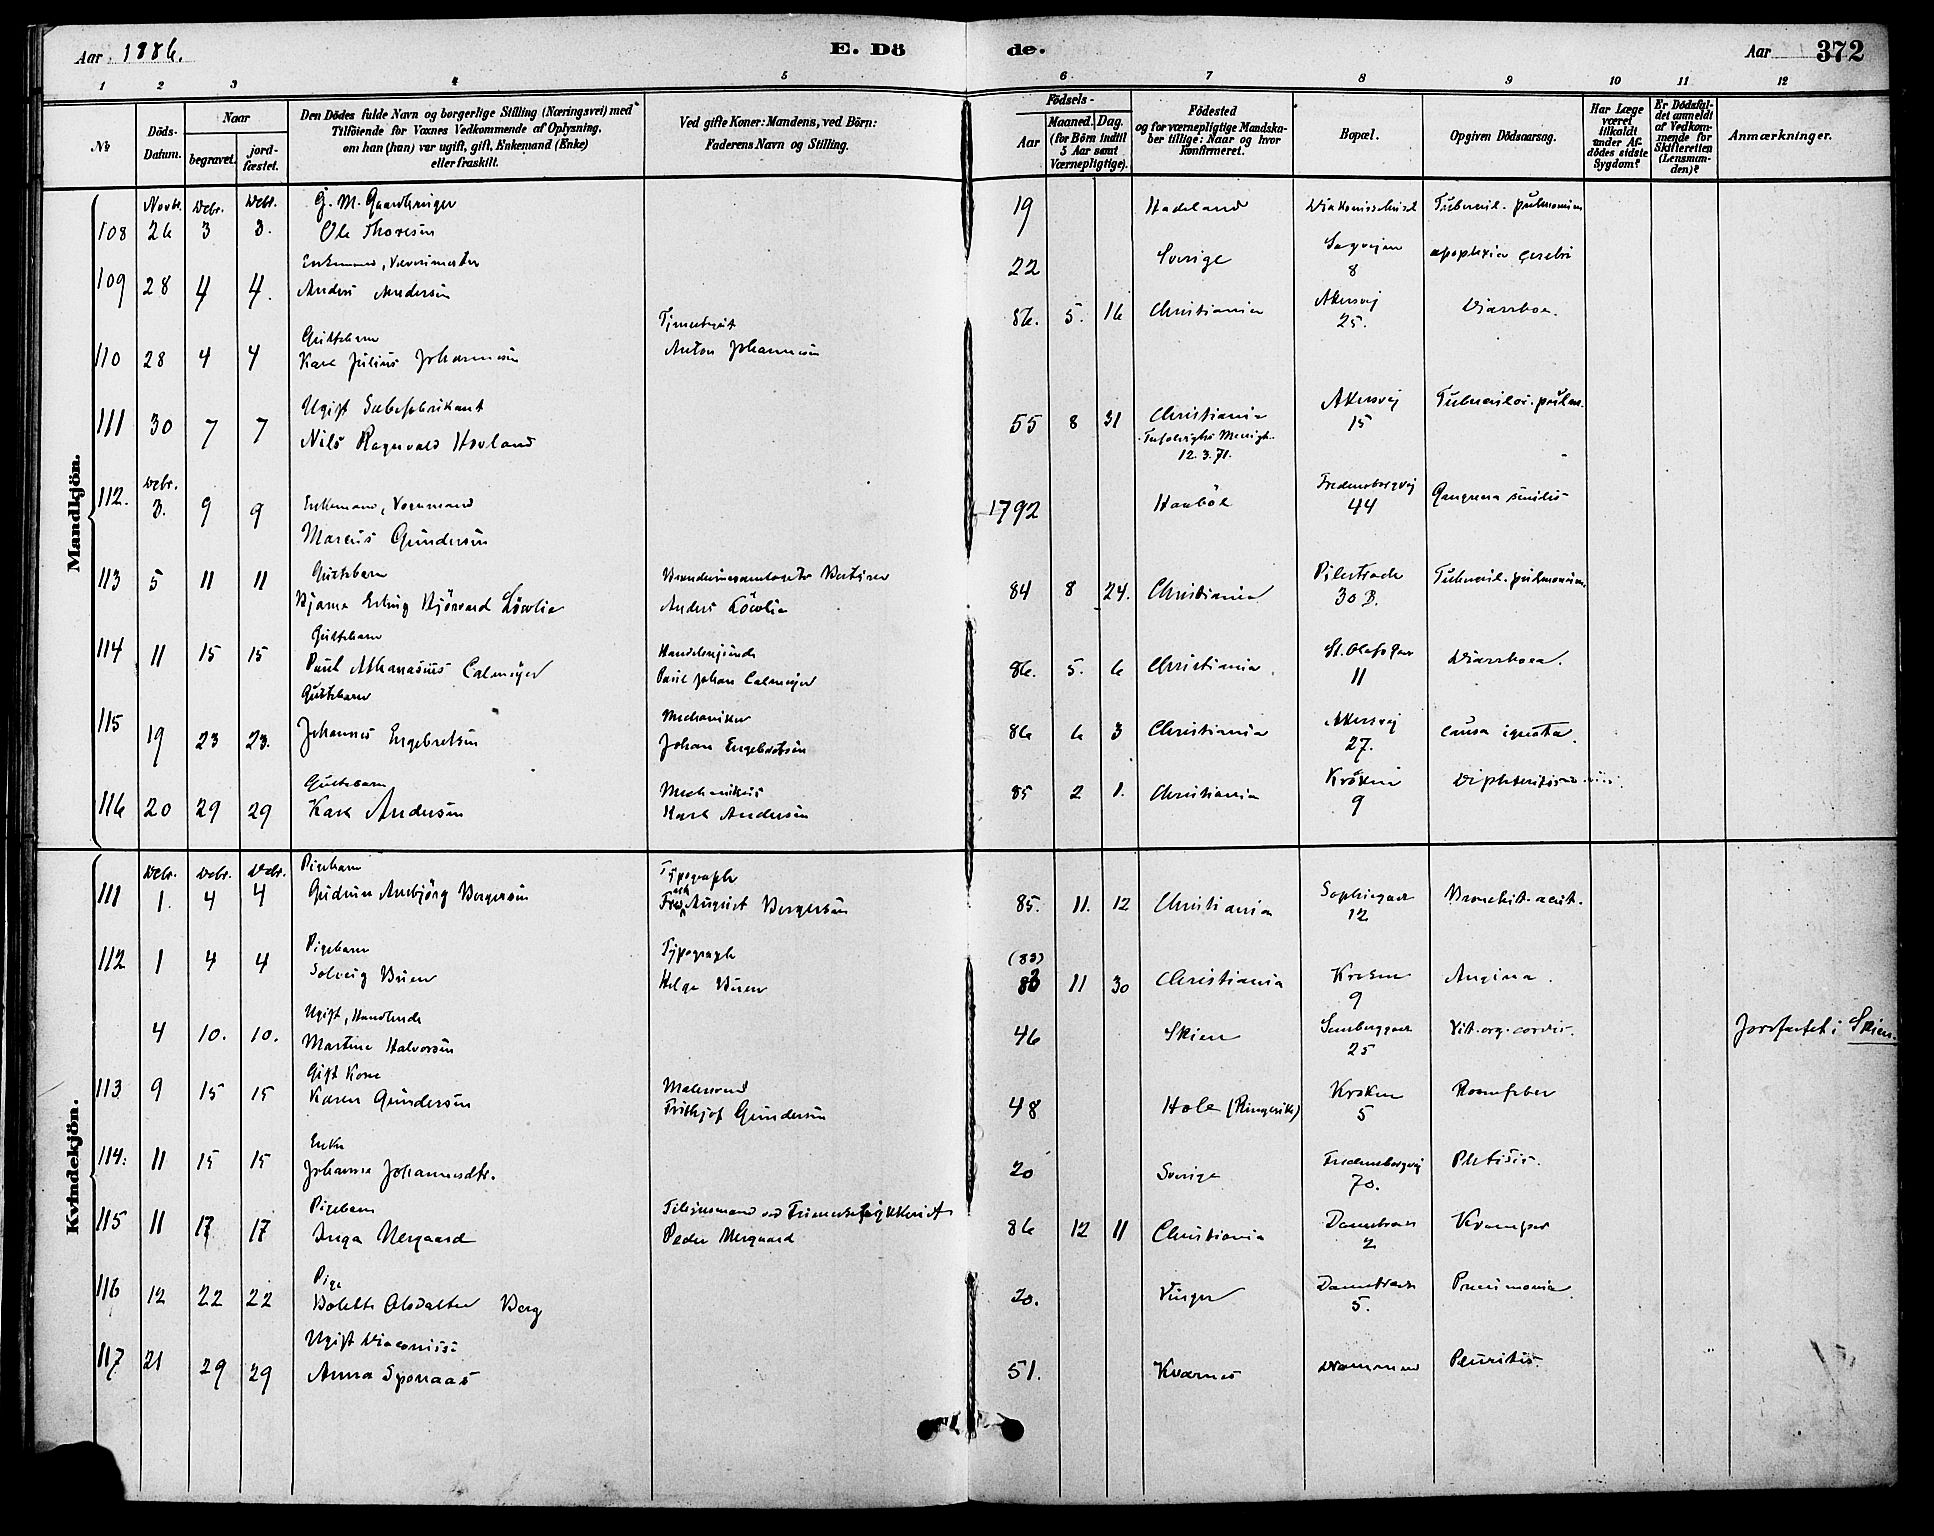 Aar 1886.
E. Dö
de.
Aar
372
1 2 3 4 5 6 7 8 9 10 11 12
No
Döds-Datum.
Naar
begravet.
jord-fæstet.
Den Dödes fulde Navn og borgerlige Stilling (Næringsvei) med
Tilföiende for Voxnes Vedkommende af Oplysning,
om han (hun) var ugift, gift, Enkemand (Enke)
eller fraskilt.
Ved gifte Koner: Mandens, ved Börn:
Faderens Navn og Stilling.
Födsels-
Aar
Maaned. Dag.
(for Börn indtil
5 Aar samt
Værnepligtige).
Födested
og for værnepligtige Mandska-
ber tillige: Naar og hvor
Konfirmeret.
Bopæl.
Opgiven Dödsaarsag.
Har Læge
været
tilkaldt
under Af-
dödes sidste
Sygdom?
Er Dödsfal-
det anmeldt
af Vedkom-
mende for
Skifteretten
(Lensman-
den)?
Anmærkninger.
Mandkjön.
Novbr. Debr. Debr. G. M. Gaardbruger
108 26 3 3. Ole Thoresen 19 Hadeland Tubercul. pulmonum
Enkemand, Vævermester
109 28 4 4. Anders Andersen 22 Sverige 8 apoplexia cerebri
Guttebarn
110 28 4 4 Karl Julius Johannesen Anton Johannesen 86. 5. 16 Christiania Akersvej 25. Diarrhoea.
Ugift Sæbefabrikant
111 30 7 7 Nils Ragnvald Hovland 55 8 31 Christiania 12.3.71. Akersvej 15 Tuberculos. pulm.
Debr.
112. 3. 9 9 Enkemand, Vognmand
Marcus Gundersen 1792 Haabøl Fredensborgvej 44 Gangræna senilis
Guttebarn
113 5 11 11 Bjarne Erling Bjørvard Løvlie Anders Løvlie 84 8 24. Christiania Pilestræde 30 B. Tubercul. pulmonum.
Guttebarn
114 11 15 15 Paul Athanasius Calmeyer Paul Johan Calmeyer 86. 5. 6 Christiania. St. Olafs Gade 11 Diarrhoea.
Guttebarn
Mechaniker
115 19 23 23. Johannes Engebretsen Johan Engebretsen 86 6 3 Christiania Akersvej 27. causa ignota.
Guttebarn
Mechanikus
116 20 29 29 Karl Andersen Karl Andersen 85 2 1. Christiania Kroken 9
Kvindekjön.
Debr. Debr. Debr. Pigebarn
Typograph
111 1. 4 4 Gudrun Ambjørg Bergersen August Bergersen 85. 11. 12 Christiania Sophiegade 12 Bronchit. acut.
Pigebarn
Typograph
(83)
112 1 4 4 Solveig Buen Helge Buen 83 11 30 Christiania Kroken 9 Angina.
Ugift, Handlende
4 10. 10. Martine Halvorsen 46 Skien 25 Vit. org. cordis. Jordfæstet i Skien.
Gift Kone
Malersvend
113 9 15 15 Karen Gundersen Frithjof Gundersen 48 Hole (Ringerike) Kroken 5 Rosenfeber
Enke
114. 11 15 15 Johanne Johannesdtr. 20 Sverige Fredensborgvej 70. Phtisis.
Pigebarn
115 11 17 17 Inga Nergaard Peder Nergaard 86 12 11 Christiania 2 Kramper
Pige
116 12 22 22 Bolette Olsdatter Berg 20. Vinger 5. Pneumonia.
Ugift Diaconisse
117 21 29 29 Anna Sponaas 51. Kvernes Drammen Pleuritis.